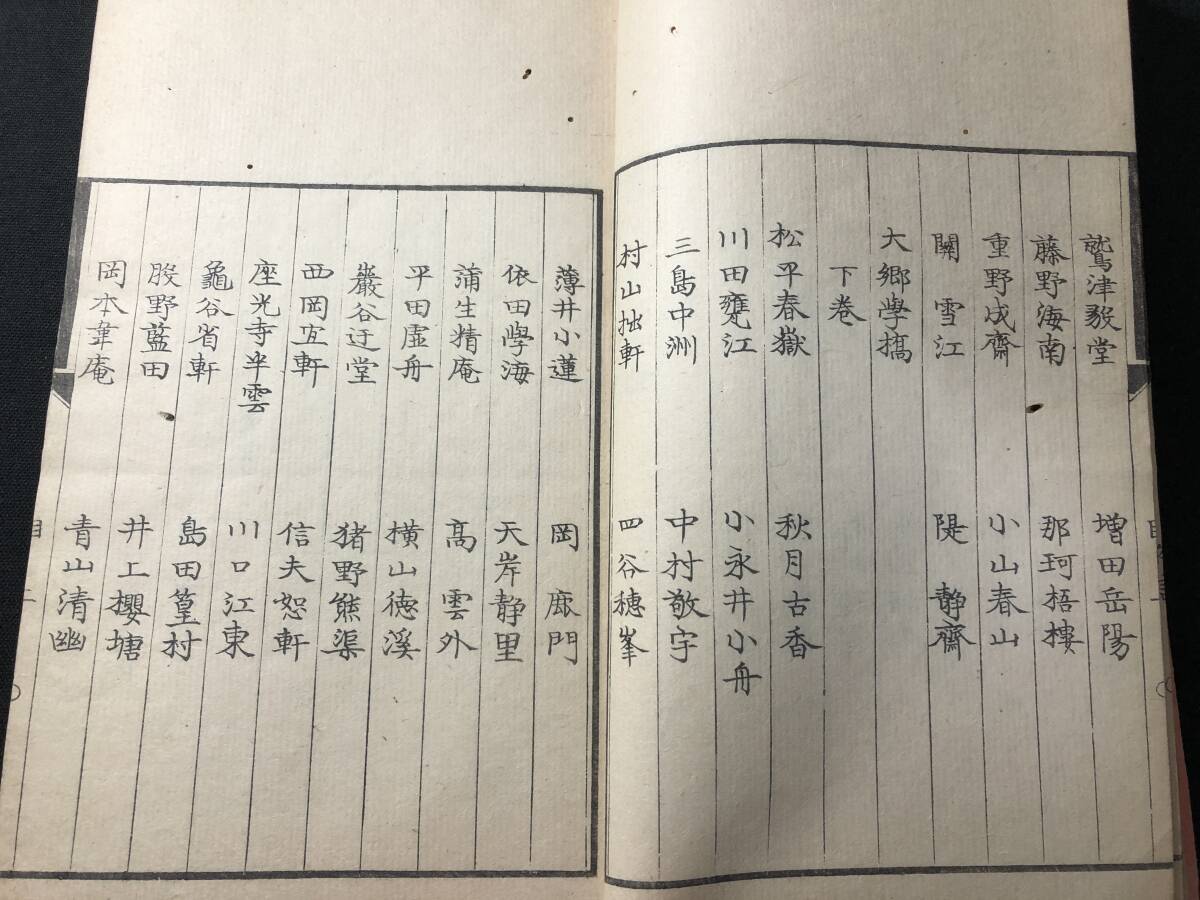 鷲津毅堂 増田岳陽
藤野海南 那珂梧樓
重野成齋 小山春山
關 雪江 隄 靜齋
大郷學橋
下卷
松平春嶽 秋月古香
川田甕江 小永井小舟
三島中洲 中村敬宇
村山拙軒 四谷穗峯
薄井小蓮 岡 鹿門
依田學海 天岸静里
蒲生精庵 高 雲外
平田虚舟 横山徳溪
巖谷迂堂 猪野熊渠
西岡宜軒 信夫恕軒
座光寺半雲 川口江東
龜谷省軒 島田篁村
股野藍田 井上櫻塘
岡本韋庵 青山清幽